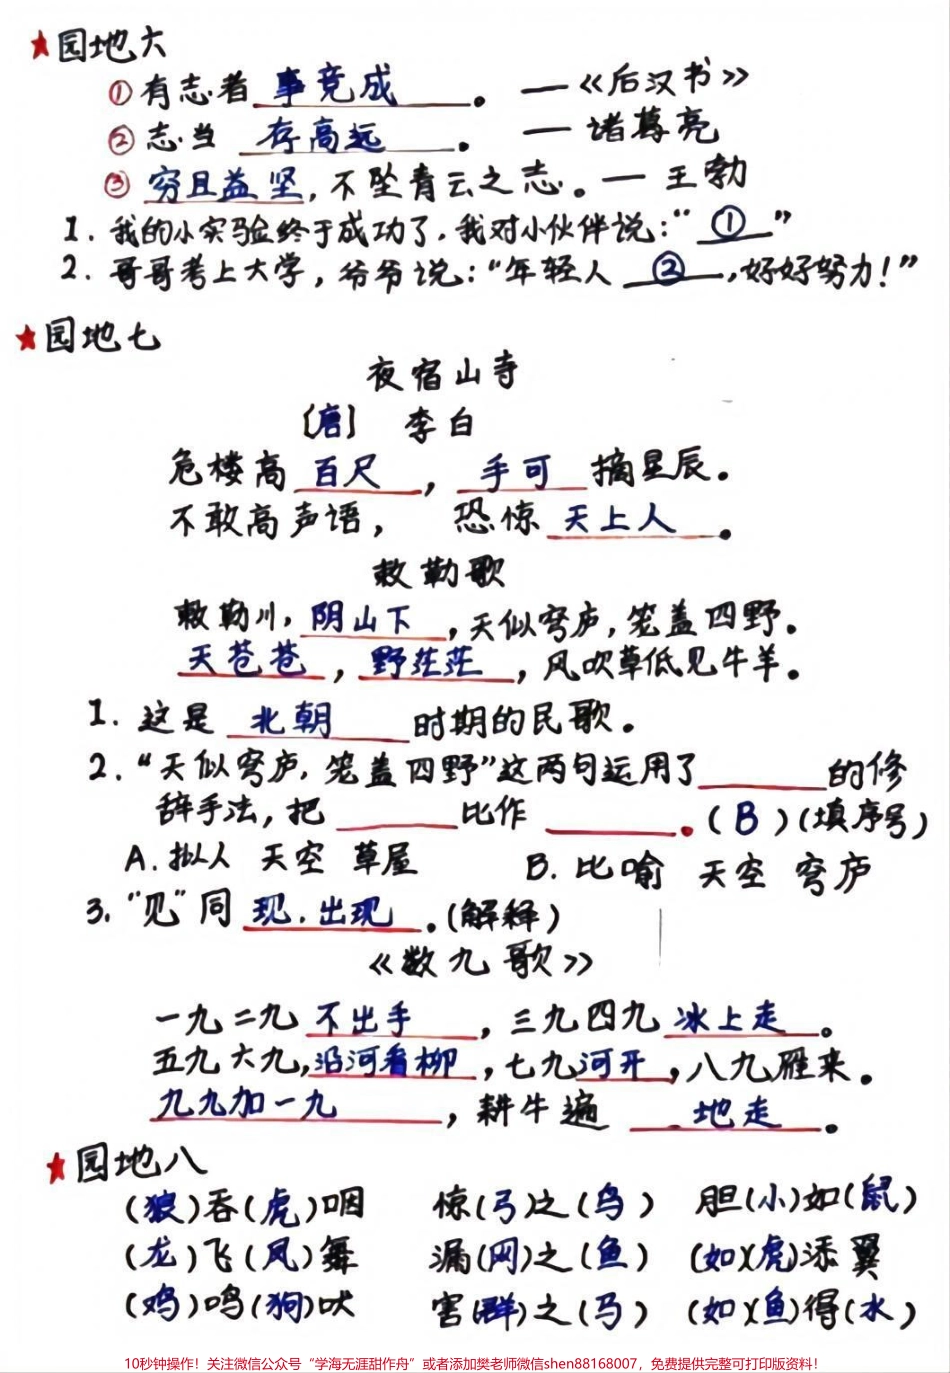 ★园地六
①有志者事竞成。 —《后汉书》
②志当 存高远。 — 诸葛亮
③穷且益坚,不坠青云之志。— 王勃
1.我的小实验终于成功了,我对小伙伴说:“①”
2.哥哥考上大学,爷爷说:“年轻人②,好好努力!”
★园地七
夜宿山寺
〔唐〕 李白
危楼高百尺,手可摘星辰。
不敢高声语, 恐惊天上人。
敕勒歌
敕勒川,阴山下,天似穹庐,笼盖四野。
天苍苍,野茫茫,风吹草低见牛羊。
1.这是 北朝 时期的民歌。
2.“天似穹庐,笼盖四野”这两句运用了______的修
辞手法,把______比作______。(B)(填序号)
A.拟人 天空 草屋 B.比喻 天空 穹庐
3.“见”同现.出现。(解释)
《数九歌》
一九二九不出手,三九四九冰上走。
五九六九,沿河看柳,七九河开,八九雁来。
九九加一九,耕牛遍 地走。
★园地八
(狼)吞(虎)咽 惊(弓)之(鸟) 胆(小)如(鼠)
(龙)飞(凤)舞 漏(网)之(鱼) (如)(虎)添翼
(鸡)鸣(狗)吠 害(群)之(马) (如)(鱼)得(水)
10秒钟操作!关注微信公众号“学海无涯甜作舟”或者添加樊老师微信shen88168007,免费提供完整可打印版资料!